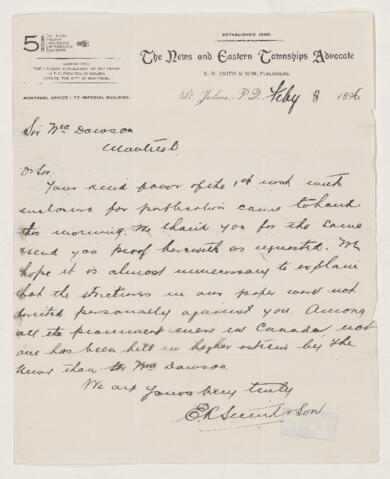 ESTABLISHED 1848.
The News and Eastern Townships Advocate
E. R. SMITH & SON, PUBLISHERS.
GUARANTEED
THE LARGEST CIRCULATION OF ANY PAPER
IN THE PROVINCE OF QUEBEC
OUTSIDE THE CITY OF MONTREAL.
MONTREAL OFFICE: 73 IMPERIAL BUILDING.
St. Johns, P.Q. Feby 8 1896
Sir Wm Dawson
Montreal
Dr Sir
Your kind favor of the 1st inst with
enclosure for publication came to hand
this morning. We thank you for the same
& send you proof herewith as requested. We
hope it is almost unnecessary to explain
that the strictures in our paper were not
directed personally against you. Among
all the prominent men in Canada, not
one has been held in higher esteem by the
News than Sir Wm Dawson.
We are
Yours very truly
E R Smith & Son